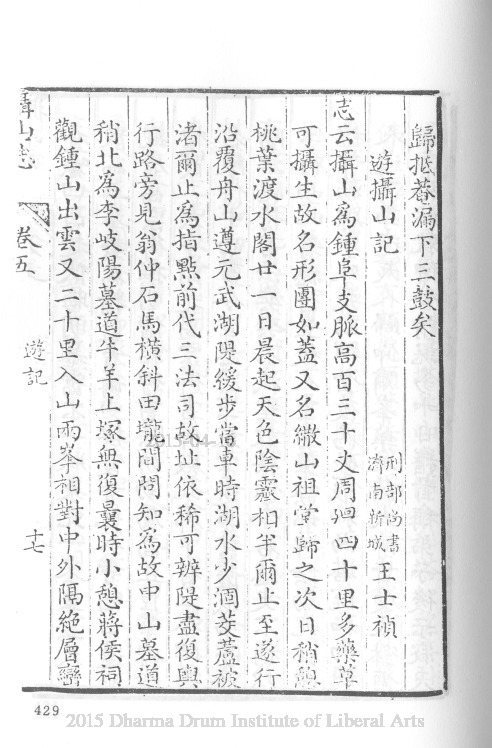 歸抵署漏下三鼓矣
遊攝山記
刑部尚書
濟南新城
王士禎
志云攝山為鍾阜支脈高百三十丈周廻四十里多藥草
可攝生故名形團如蓋又名繖山祖堂歸之次日稍憩
桃葉渡水閣廿一日晨起天色陰靄相半爾止至遂行
沿覆舟山遵元武湖隄緩步當車時湖水少涸茭蘆被
渚爾止為指點前代三法司故址依稀可辨隄盡復輿
行路旁見翁仲石馬橫斜田壠間問知為故中山墓道
稍北為李岐陽墓道牛羊上塚無復曩時小憩蔣侯祠
觀鍾山出雲又二十里入山兩峯相對中外隔絶層巒
攝山志
卷五
遊記
十七
429
2015 Dharma Drum Institute of Liberal Arts